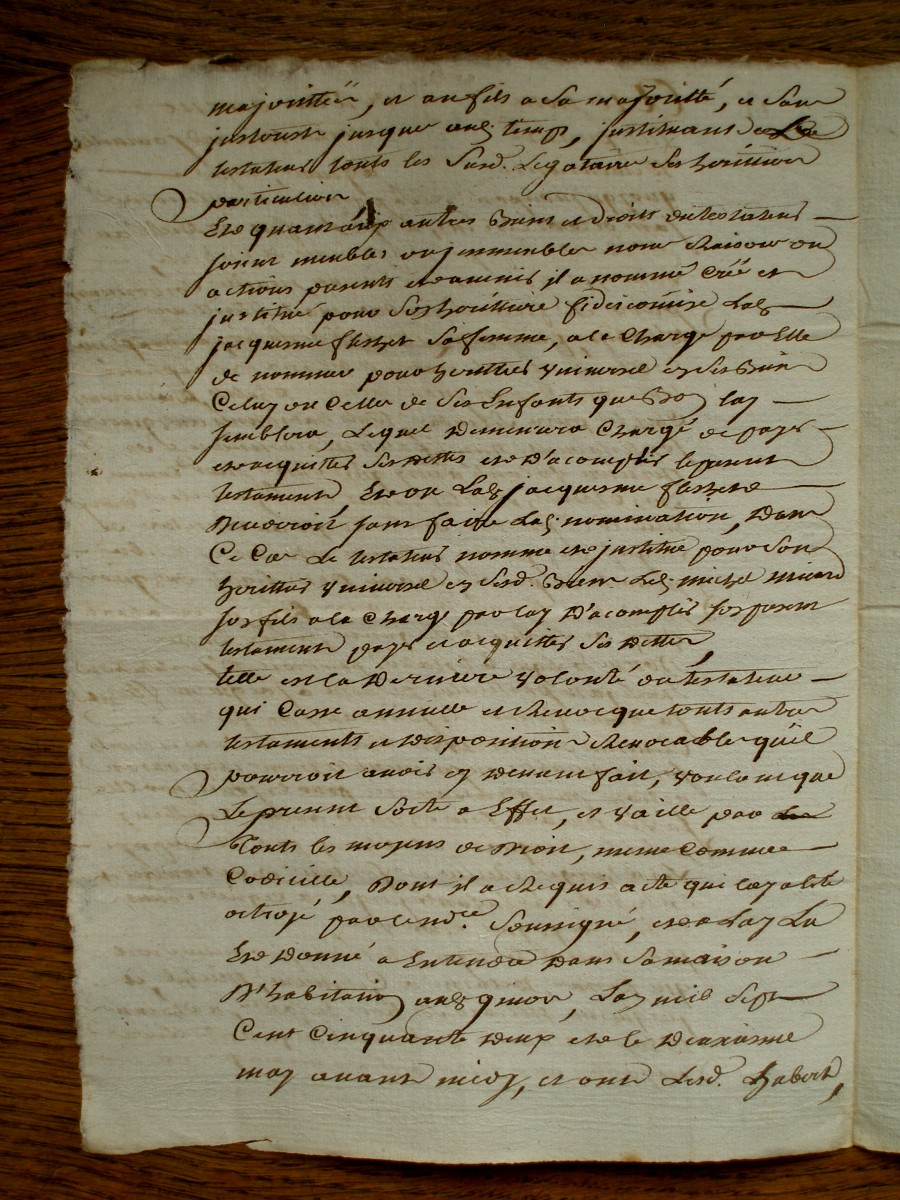 majorittée, et au fils a sa majoritté, et sans
jusques aud. temps, justituant le
testateur touts les susd. Legataires ses herittiers
particuliers
Et quant aux autres Biens et droits du testateur
soient meubles ou jmmeubles noms Raisons ou
actions presents et avenir il a nommé créé et
justitué pour son herittiere fideicomise Lad.
jacquesme safemme, a la charge par Elle
de nommer pour herittier vniversel en ses Biens
Celuy ou Celle de ses Enfants que Bon luy
semblera, Lequel Demeurera Chargé de payer
et acquitter ses dettes et D'acomplir le present
testament Et ou Lad. jacquesme
Decederoit sans faire Lad. nomination, Dans
Ce Cas Le testateur nomme et justitue pour son
herittier vniversel en sesd. Biens Led. michel
son fils a la Charge par luy D'acomplir son present
testament payer et acquitter ses Dettes,
telle est la Derniere volonté du testateur
qui Casse annulle et Revocque touts autres
testaments et Dispositions Revocables qu'il
pourroit avoir cy Devant fait, voulant que
Le present sorte a Effet, et vaille par
Touts les moyens de Droit, meme Comme
Codicille, Dont il a Requis acte que luy a été
octroyé par le nore. Soussigné, et a luy Lu
Et Donné a Entendre Dans sa maison
D'habitation aud. Lan mil sept
Cent Cinquante Deux et le Deuxieme
may avant midy, et ont Lesd. habert,